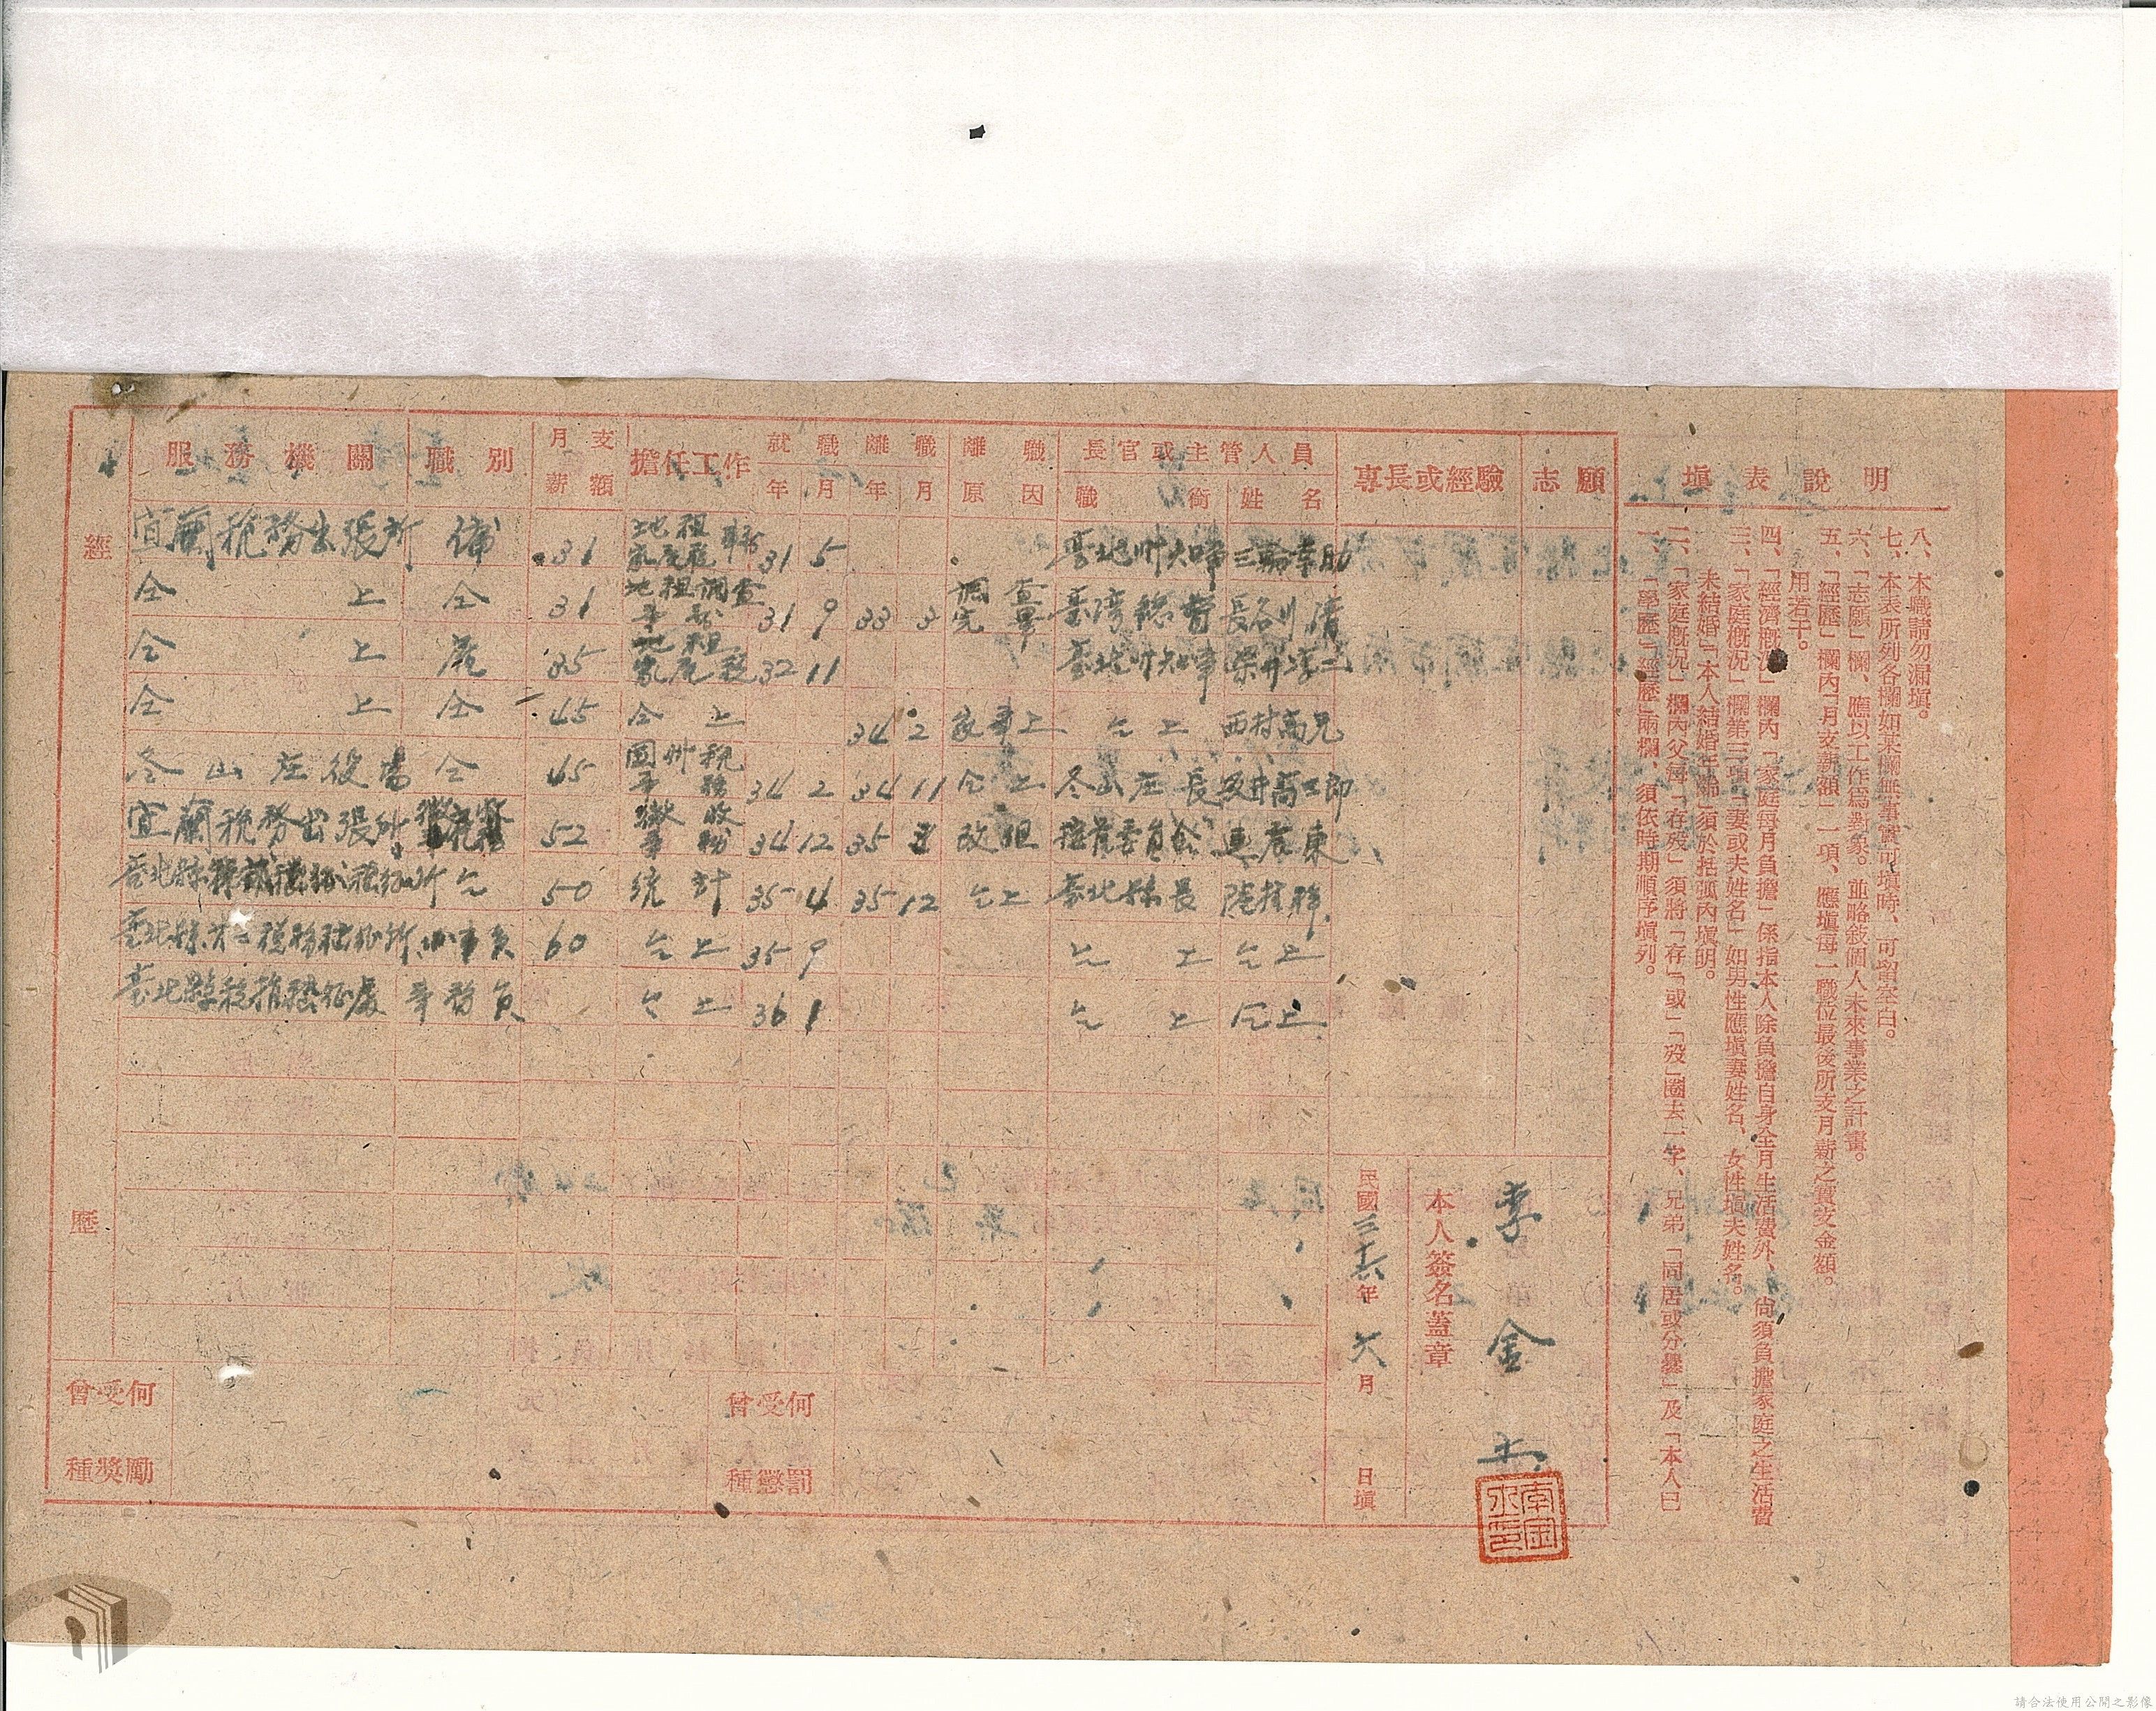 服務機關 職別 月支薪額 擔任工作 就職年月 離職年月 離職原因 長官或主管人員 職銜 姓名 專長或經驗 志願
經歷
宜蘭稅務出張所 傭 31 地租家屋稅 31 5 臺北州知事 三輪幸助
仝上 仝 31 地租調查事務 31 9 33 3 調查完畢 臺灣總督 長谷川清
仝上 雇 35 地租家屋稅 32 11 臺北州知事
仝上 仝 45 仝上 34 2 家事上 仝上 西村高兄
冬山庄役場 仝 45 國州稅事務 34 2 34 11 仝上 冬山庄長
宜蘭稅務出張所 52 徵收事務 34 12 35 改組 接管委員會 連震東
臺北縣 所 仝 50 統計 35 4 35 12 仝上 臺北縣長 陸桂祥
臺北縣 稅務稽征所 办事員 60 仝上 35 9 仝上 仝上
臺北縣稅捐稽征處 事務員 仝上 36 1 仝上 仝上
曾受何種獎勵
曾受何種懲罰
本人簽名蓋章
李金土
民國三十六年六月 日填
填表說明
一、「學歷」「經歷」兩欄、須依時期順序填列。
二、「家庭概況」欄內父母「存歿」須將「存」「或」「歿」圈去一字、兄弟「同居或分爨」及「本人曰
未結婚」「本人結婚年齡」須於括弧內填明。
三、「家庭概況」欄第三項「妻或夫姓名」如男性應填妻姓名、女性填夫姓名。
四、「經濟概況」欄內「家庭每月負擔」係指本人除負擔自身全月生活費外、尙須負擔家庭之生活費
用若干。
五、「經歷」欄內「月支薪額」一項、應填每一職位最後所支月薪之實支金額。
六、「志願」欄、應以工作爲對象。並略敍個人未來事業之計畫。
七、本表所列各欄如某欄無事實可填時、可留空白。
八、本職請勿漏填。
請合法使用公開之影像